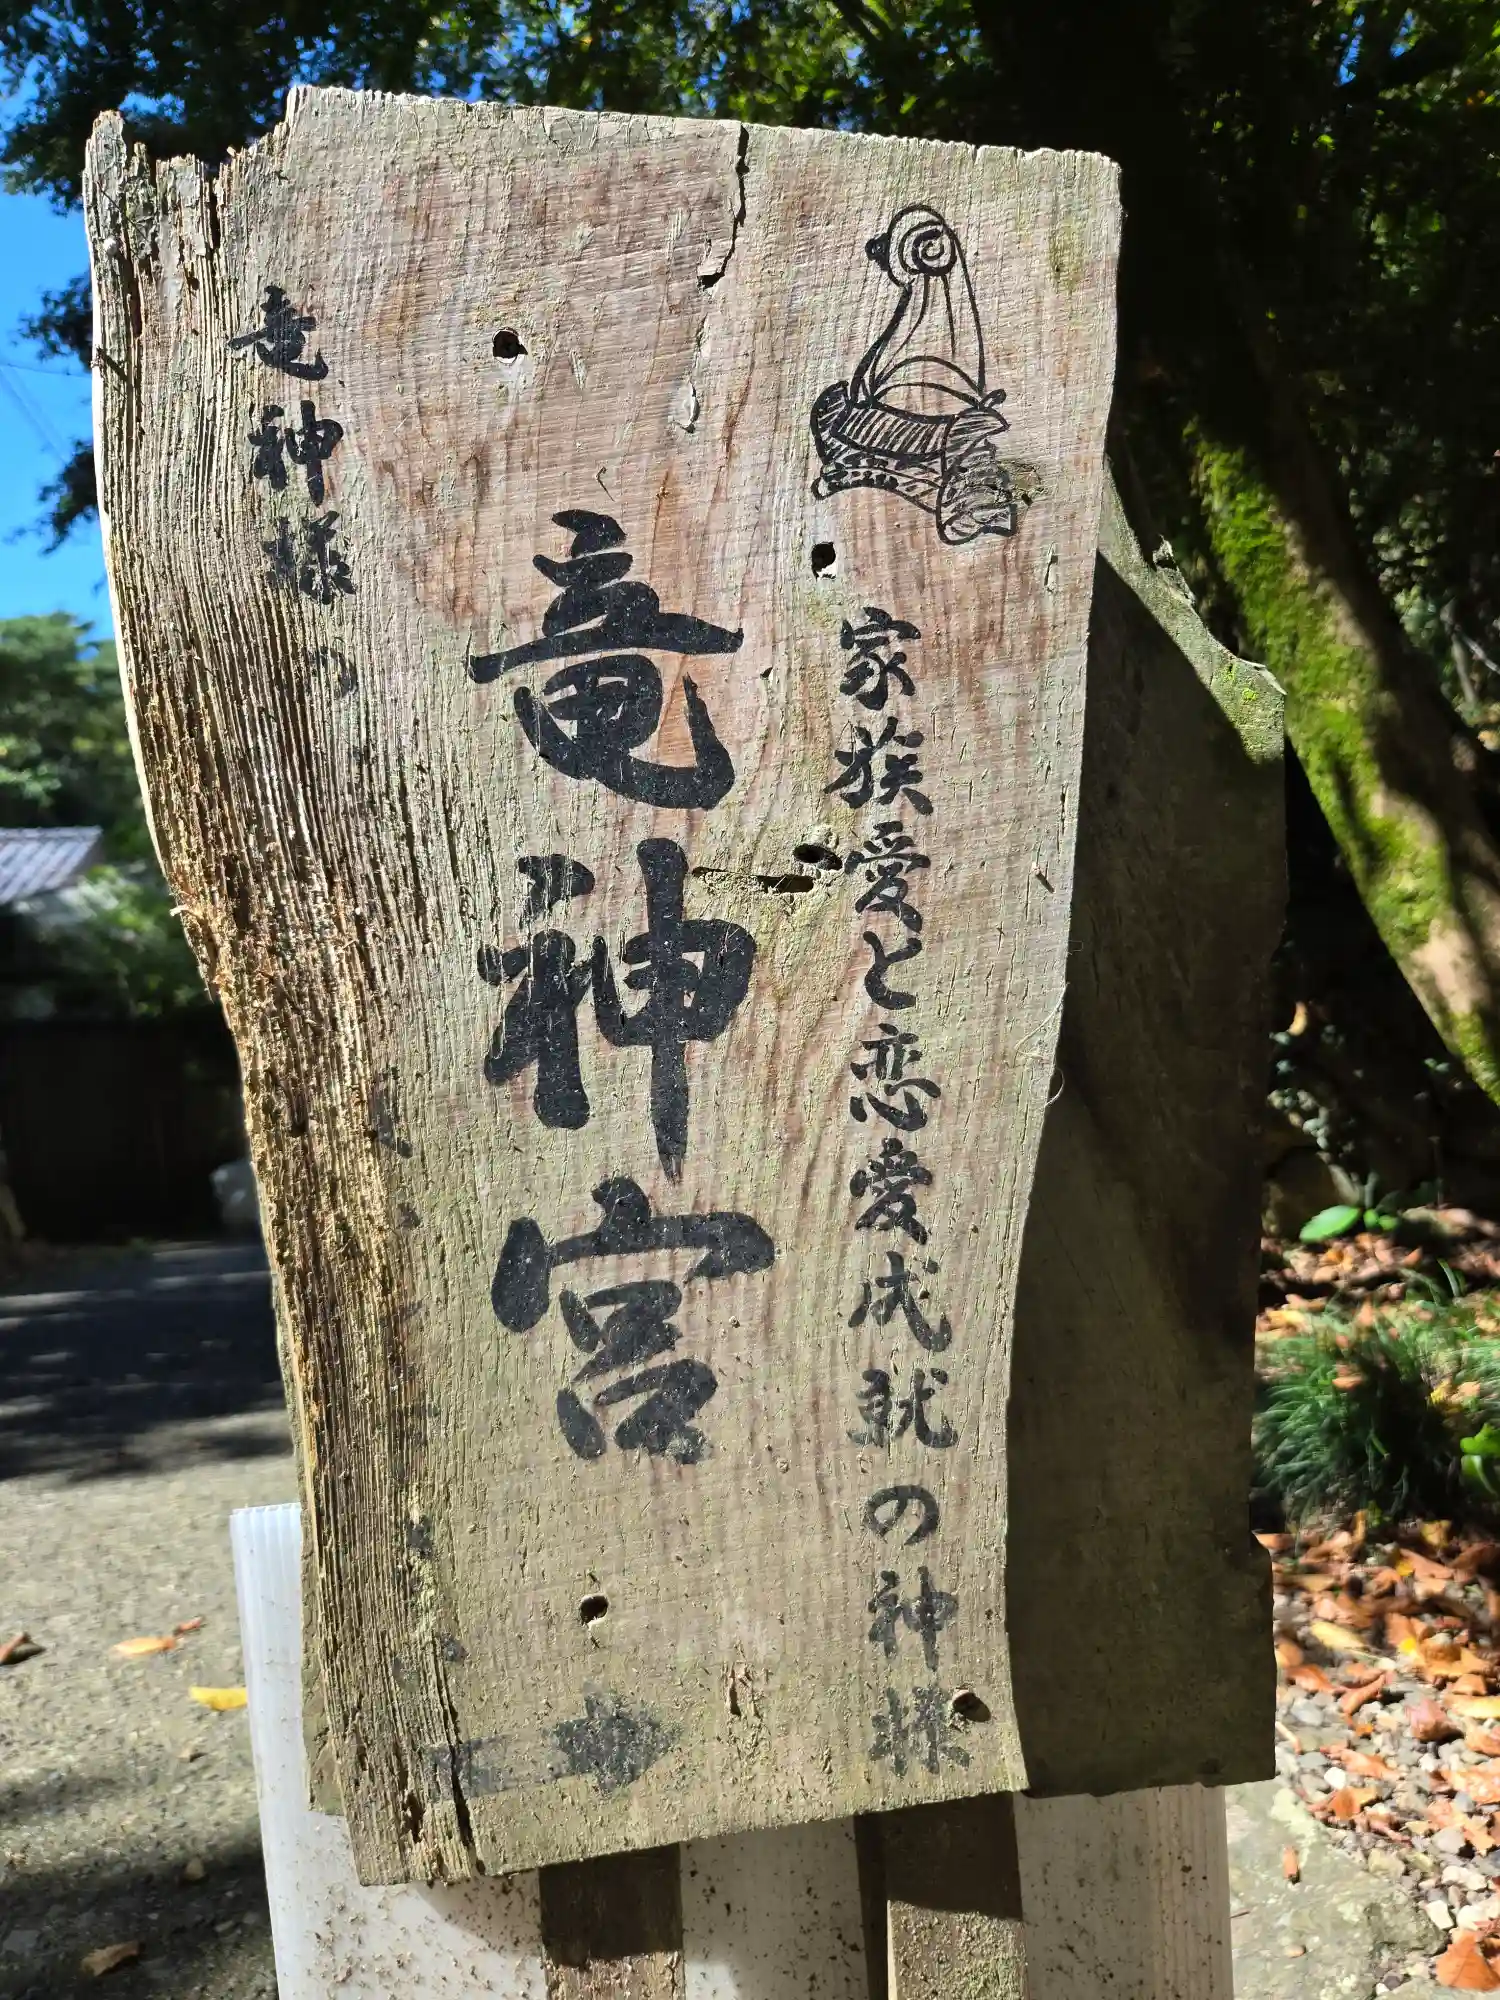 家族愛と恋愛成就の神様
竜神宮
竜神様の